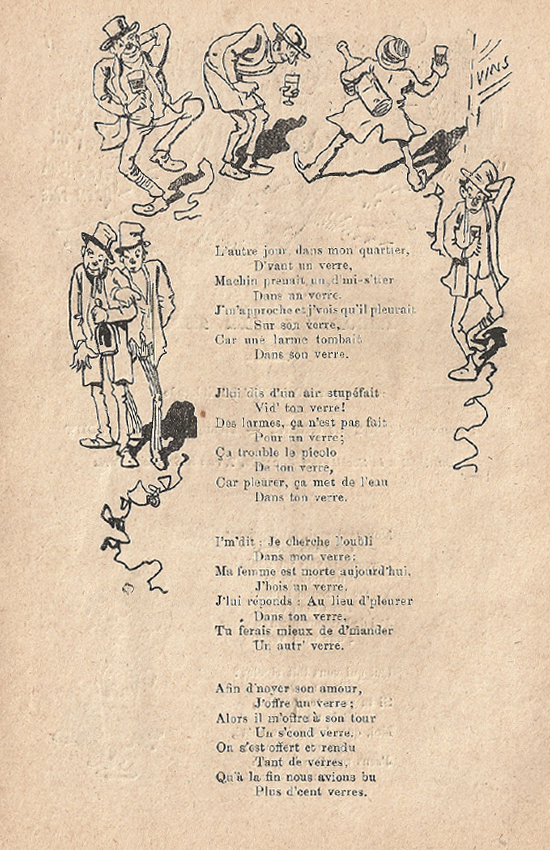 VINS
L'autre jour, dans mon quartier,
D'vant un verre,
Machin prenait un d'mi-s'tier
Dans un verre.
J'm'approche et j'vois qu'il pleurait
Sur son verre,
Car une larme tombait
Dans son verre.
J'lui dis d'un air stupéfait :
Vid' ton verre!
Des larmes, ça n'est pas fait
Pour un verre;
Ça trouble le picolo
De ton verre,
Car pleurer, ça met de l'eau
Dans ton verre.
I'm'dit : Je cherche l'oubli
Dans mon verre;
Ma femme est morte aujourd'hui,
J'bois un verre.
J'lui réponds : Au lieu d'pleurer
Dans ton verre,
Tu ferais mieux de d'mander
Un autr' verre.
Afin d'noyer son amour,
J'offre un verre;
Alors il m'offre à son tour
Un s'cond verre.
On s'est offert et rendu
Tant de verres,
Qu'à la fin nous avions bu
Plus d'cent verres.